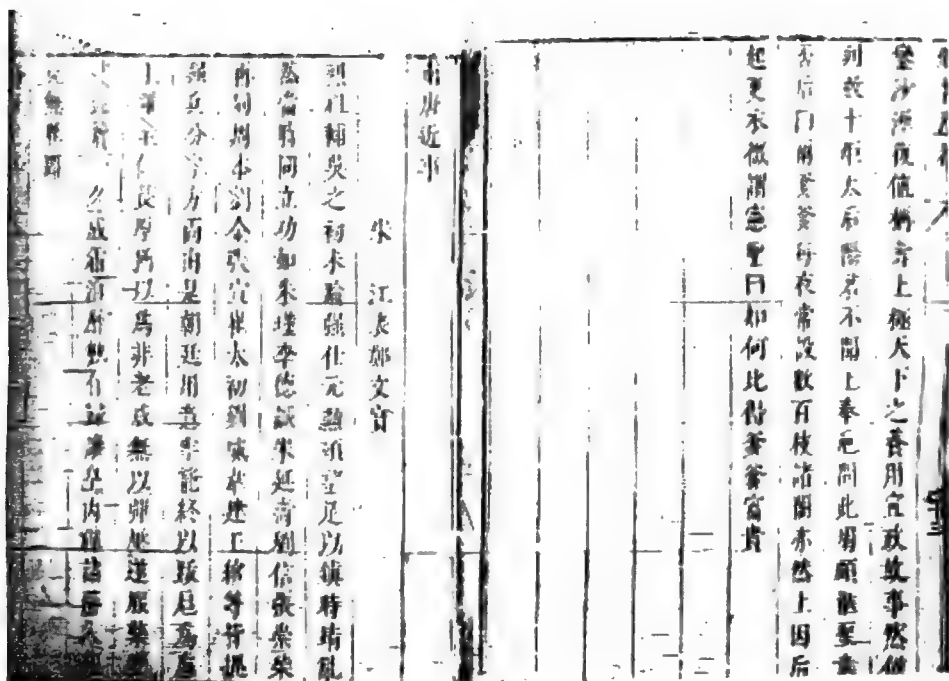 鑾沙漠復值稱壽上極天下之養用宣政故事然僅
列數十炬太后陽若不聞上奉卮問此燭頗愜聖意
否后曰爾爹爹每夜常設數百枝諸閣亦然上因后
起更衣微謂憲聖曰如何比得爹爹富貴
南唐近事
宋 江表鄭文寶
烈祖輔吳之初未踰強仕元勳碩望足以鎮時靖亂
然當時同立功如朱瑾李德誠朱延壽劉信張崇柴
再用周本劉金張宣崔太初劉威韋建王綰等皆握
彊兵分守方面由是朝廷用意牢籠終以跋扈為慮
上雖至仁長厚猶以為非老成無以彈壓遂服藥變